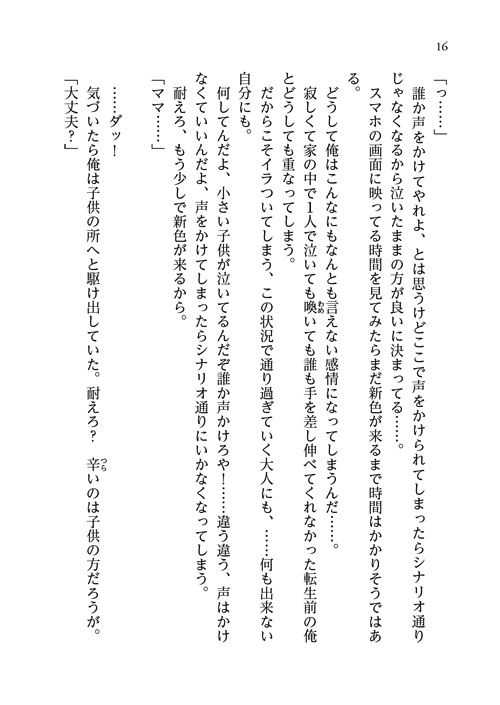 16
「っ……」
　誰か声をかけてやれよ、とは思うけどここで声をかけられてしまったらシナリオ通り
じゃなくなるから泣いたままの方が良いに決まってる……。
　スマホの画面に映ってる時間を見てみたらまだ新色が来るまで時間はかかりそうではあ
る。
　どうして俺はこんなにもなんとも言えない感情になってしまうんだ……。
　寂しくて家の中で１人で泣いても喚いても誰も手を差し伸べてくれなかった転生前の俺
とどうしても重なってしまう。
　だからこそイラついてしまう、この状況で通り過ぎていく大人にも、……何も出来ない
自分にも。
　何してんだよ、小さい子供が泣いてるんだぞ誰か声かけろや！……違う違う、声はかけ
なくていいんだよ、声をかけてしまったらシナリオ通りにいかなくなってしまう。
　耐えろ、もう少しで新色が来るから。
「ママ……」
　……ダッ！
　気づいたら俺は子供の所へと駆け出していた。耐えろ？　辛いのは子供の方だろうが。
「大丈夫？」